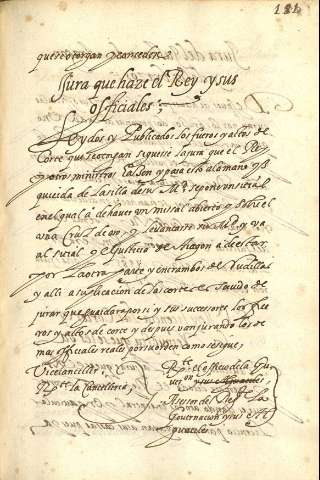 184
que se otorgan y conceden
Jura que haze el Rey y sus
officiales
Leydos y Publicados los fueros y actos de
Corte que se otorgan se siguesse la jura que el Rey
y otros ministros hazen y para esso a la mano
de la silla de su Mag se pone un sitial
en el qual a de haver un missal abierto y sobre el
una Cruz de oro, y levantasse su Mag y va
al sitial y el Justicia de Aragon a de estar
por la otra parte y entrambos de Rudillas
y alli a suplicacion de la corte es servido de
jurar que guardara por si y sus successores los fue
ros y actos de corte y despues van jurando los de
mas officiales reales por su orden como se sigue,
Vicecanciller
Rte la cancilleria
Rte el officio de la Gu
Asesor del
Governacion y sus